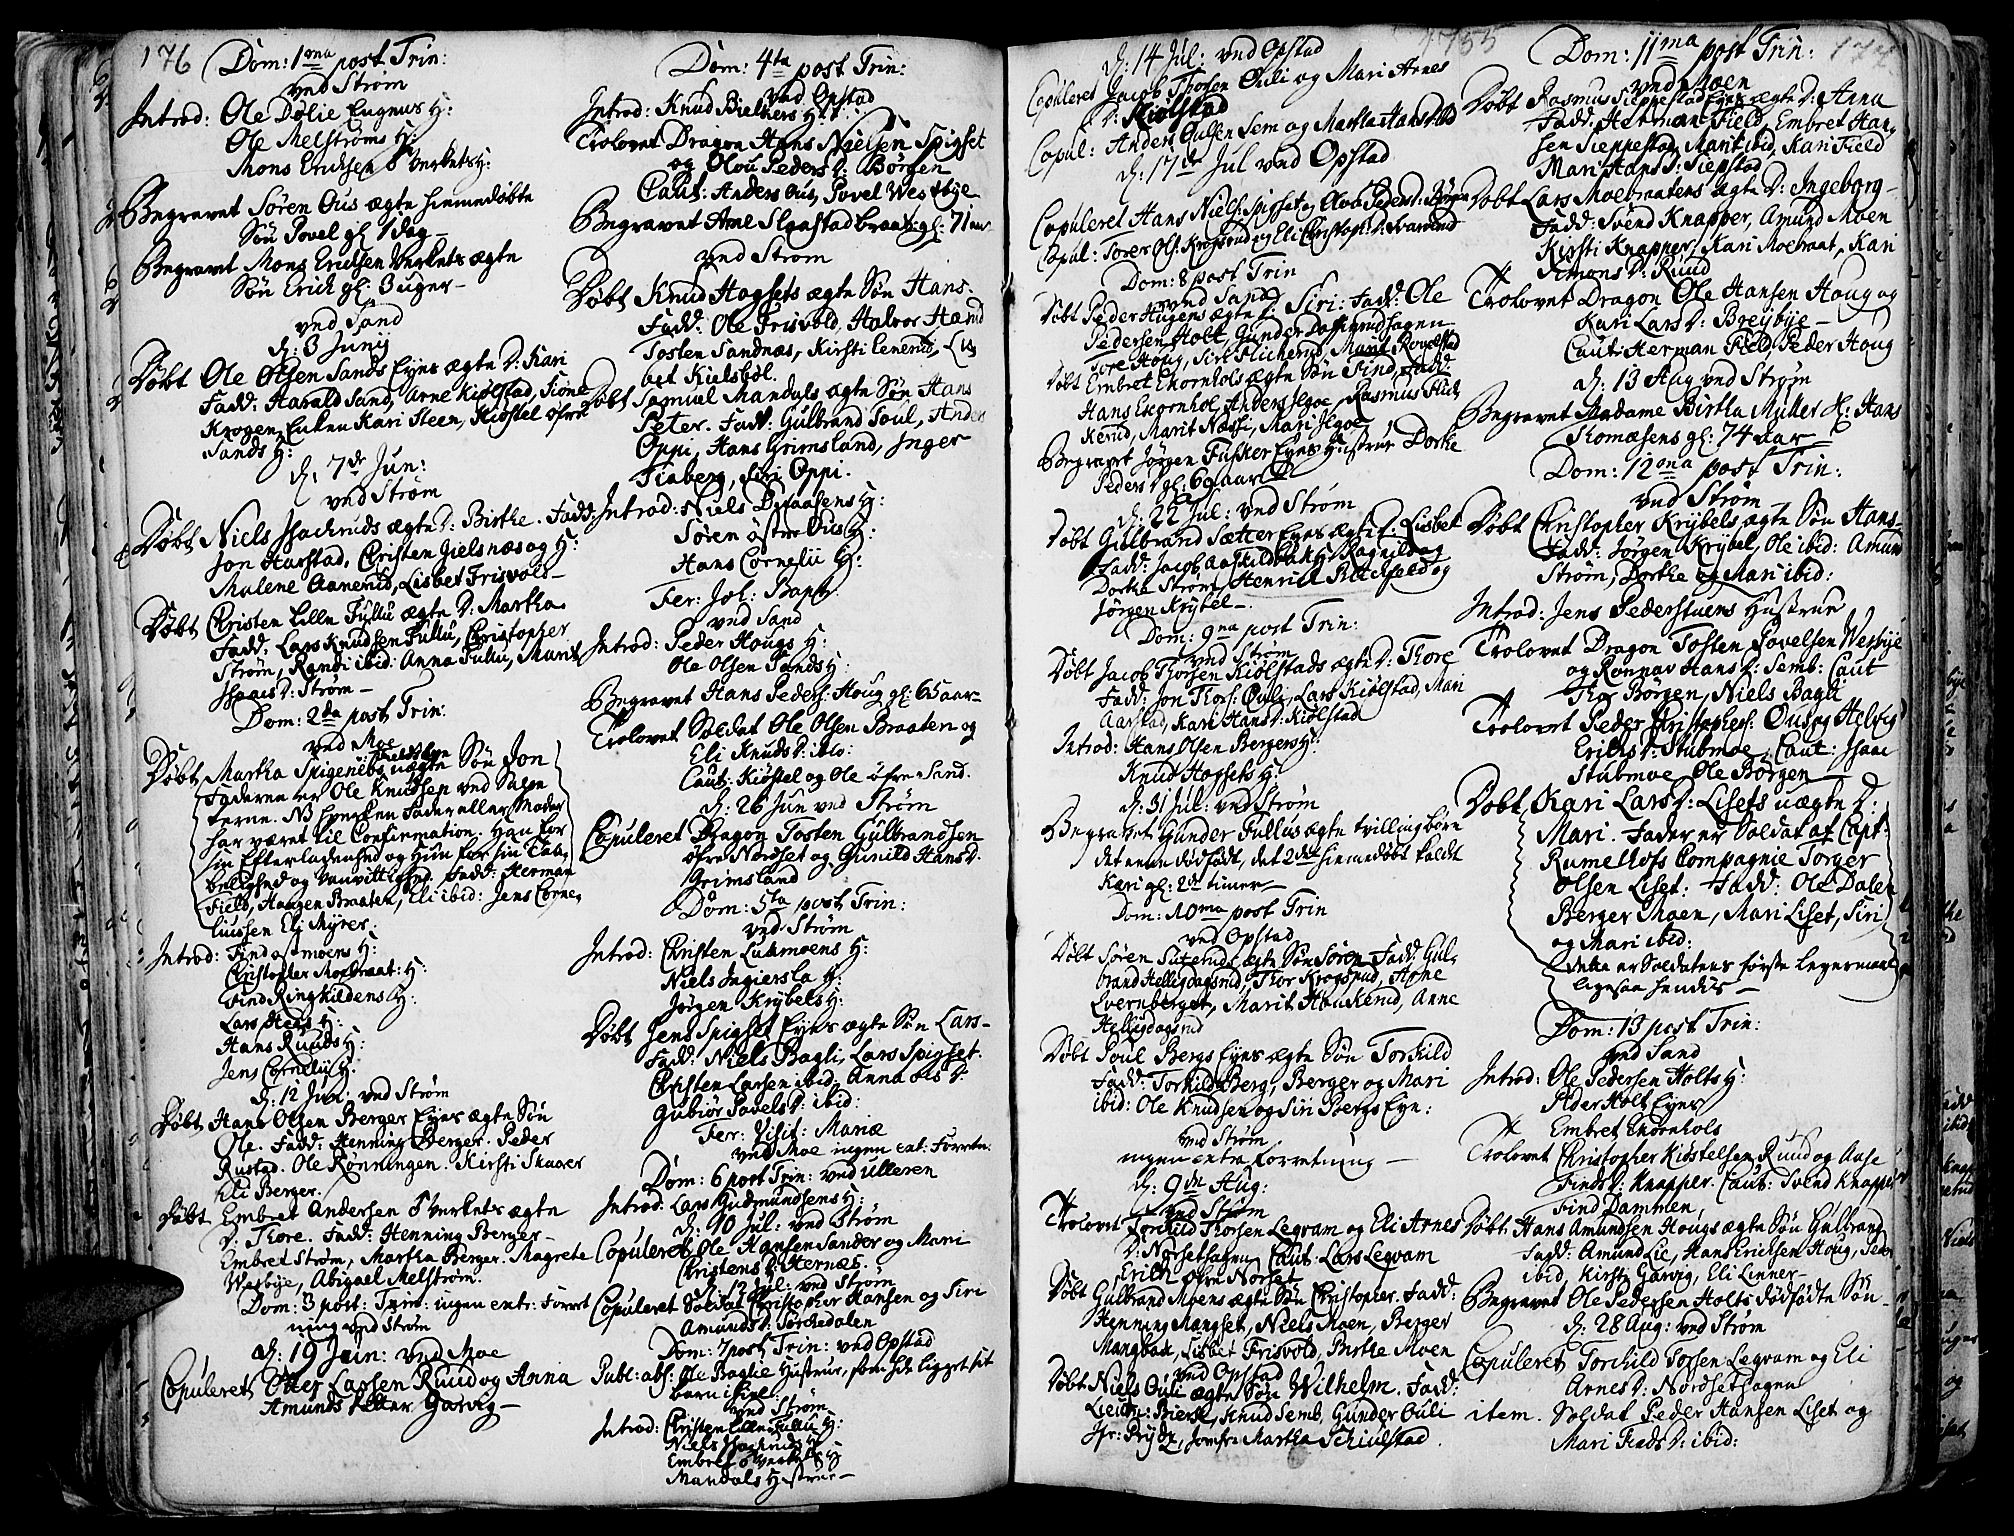 176
Dom: 1ma post Trin:
ved Strøm
Introd: Ole Dølie Eugnus H:
Ole Melstrøms H:
Mons Erichsen Verkets H:
Begravet Søren Ous ægte hiemmedøbte
Søn Povel gl: 1 dag
Begravet Mons Erichsen Verkets ægte
Søn Erich gl: 3 uger
ved Sand
d: 3 Junij
Døbt Ole Olsen Sands Eyes ægte D: Kari
Fadd: Harald Sand, Arne Kiølstad, Sione
Krogen, Enken Kari Steen, Kiøstel øfre
Sands H:
d: 7de Jun:
ved Strøm
Døbt Niels Isachruds ægte D: Birthe. Fadd:
Jon Harstad, Christen Gielsnæs og H:
Malene Aanerud, Lisbet Frisvold
Døbt Christen lille Fullu ægte D: Martha
Fadd: Lars Knudsen Fullu, Christopher
Strøm, Randi ibid: Anna Fullu, Marit
Isaacs D: Strøm
Dom: 2da post Trin:
ved Moe
Døbt Martha Spigsets uægte Søn Jon
Faderen er Ole Knudsen ved Salte
terne. NB hverken Fader eller Moder
har været til Confirmation. Han for
sin Efterladenhed og Hun for sin Taa
belighed og vanvittighed. Fadd: Herman
Field, Haagen Braaten, Eli ibid: Jens Corne
liussen Eli Myrer.
Introd: Find Ostmoens H:
Christopher Moebraat: H:
Find Ringkildens H:
Lars Hees H:
Hans Ruuds H:
Jens Cornelij H:
d: 12 Jun: ved Strøm
Døbt Hans Olsen Berger Eyes ægte Søn
Ole. Fadd: Henning Berger. Peder
Rustad. Ole Rønningen. Kirsti Skaarer
Eli Berger.
Døbt Embret Andersen Verkets ægte
D: Thore. Fadd: Henning Berger
Embret Strøm, Martha Berger. Magrete
Wæsbye, Abigael Melstrøm.
Dom: 3 post: Trin: ingen entr: Forret
ning ved Strøm
d: 19 Jun: ved Moe
Copuleret Otter Larsen Ruud og Anna
Amunds Petter Garvig
Dom: 4ta post Trin:
ved Opstad
Introd: Knud Bielkers H:
Trolovet Dragon Hans Nielsen Spigset
og Olou Peders D: Børgen
Caut: Anders Ous, Povel Westbye
Begravet Arne Slaastadbraaten gl: 71 aar
ved Strøm
Døbt Knud Hogsets ægte Søn Hans.
Fadd: Ole Frisvold, Halvor Hand
Tosten Sandnæs, Kirsti Enerud, Lis
bet Kielsbøl.
Døbt Samuel Mandals ægte Søn Hans
Peter. Fadd: Gulbrand Soul, Anders
Oppi, Hans Grimsland, Inger
Finberg, Siri Oppi.
Introd: Niels Dysaasens H:
Søren østre Ous H:
Hans Cornelii H:
Fer: Joh: Bapt:
ved Sand
Introd: Peder Hougs H:
Ole Olsen Sands H:
Begravet Hans Peders: Houg gl: 65 aar
Trolovet Soldat Ole Olsen Braaten og
Eli Knuds D: ibid:
Caut: Kiøstel og Ole øfre Sand.
d: 26 Jun ved Strøm
Copuleret Dragon Tosten Gulbrandsen
øfre Nordset og Gunild Hans D:
Grimsland
Dom: 5ta post Trin:
ved Strøm
Introd: Christen Lukmoens H:
Niels Ingiersla H:
Jørgen Krybels H:
Døbt Jens Spigset Eyes ægte Søn Lars
Fadd: Niels Bagli, Lars Spigset.
Christen Larsen ibid, Anna Ols D:
Gubiør Povels D: ibid:
Fer: Visit: Mariæ
ved Moe ingen ext: Forretn:
Dom: 6 post Trin: ved Ulleren
Introd: Lars Gudmundsens H:
d: 10 Jul: ved Strøm
Copuleret Ole Hansen Sander og Mari
Christens D: Hernæs.
d: 12 Jul: ved Strøm
Copuleret Soldat Christopher Hansen og Siri
Amunds D: Sørkedalen
Dom: 7 post Trin: ved Opstad
Publ: abs: Ole Baglie Hustrue, som har ligget sit
barn ihiel:
ved Strøm
Introd: Christen lille Fullu H:
Niels Isachruds H
Embret Verkets H
Mandals Hustrue
1755
d: 14 Jul: ved Opstad
Copuleret Jacob Thorsen Ouli og Mari Arnes
D: Kiølstad
Copul: Anders Oulsen Sem og Martha Hansdld
d: 17de Jul ved Opstad
Copuleret Hans Niels: Spigset og Olou Peders D: Børgen
Copul: Sorer Ols: Krogsrud og Eli Christoph: D: Svarerud
Dom: 8 post Trin
ved Sand
Døbt Peder Hugens ægte D: Siri: Fadd: Ole
Pedersen Holt, Gunder Dallerudhagen
Tore Houg, Siri Flicherud, Marit Rovelstad
Døbt Embret Ekornhols ægte Søn Find, Fadd:
Hans Ekornhol, Anders Igoe, Rasmus Flich
kerud, Marit Næsse, Mari Igoe
Begravet Jørgen Fusker Eyes Hustrue Dorthe
Peders D gl: 69 aar
d: 22 Jul: ved Strøm
Døbt Gulbrand Sætter Eyes ægte D: Lisbet
Fadd: Jacob Aaskildbak H: Ragnild og
Dorthe Strøm, Henrich Bleckfeld og
Jørgen Krybel
Dom: 9na post Trin:
ved Strøm
Døbt Jacob Thorsen Kiølstads ægte D: Thore
Fadd: Jon Thors: Ouli, Lars Kiølstad, Mari
Aarstad, Kari Hans D: Kiølstad
Introd: Hans Olsen Bergers H:
Knud Hogsets H:
d: 31 Jul: ved Strøm
Begravet Gunder Fullus ægte tvillingbørn
det eene dødfødt, det 2det hiemmedøbt kaldt
Kari gl: 2 timer
Dom: 10ma post Trin
ved Opstad
Døbt Søren Suteruds ægte Søn Søren. Fadd: Gul
brand Helligdagsrud, Thor Krogsrud, Arne
Evernberget, Marit Houkerud, Anne
Helligdagsrud
Døbt Poul Bergs Eyes ægte Søn Torkild
Fadd: Torkild Berg, Berger og Mari
ibid: Ole Knudsen og Siri Bergs Eye:
ved Strøm
ingen extra forretning
d: 9de Aug:
ved Strøm
Trolovet Torkild Thorsen Legvam og Eli Arnes
D: Norsethagen Caut: Lars Legvam
Erich øfre Norset
Døbt Gulbrand Moens ægte Søn Christopher. Fadd:
Henning Mangset, Niels Moen, Berger
Mangbak, Lisbet Frisvold, Birthe Moen
ved Opstad
Døbt Niels Ouli ægte Søn Wilhelm. Fadd:
Lieutn: Bierk, Knud Semb, Gunder Ouli
Hr: Prydz, Jomfr: Martha Schiulstad
Dom: 11ma post Trin: 177
ved Moen
Døbt Rasmus Sieppestad Eyes ægte D: Anna
Fadd: Herman Field, Embret Han
sen Sieppestad, Marit ibid, Kari Field
Mari Hans D: Siepstad
Døbt Lars Moebraatens ægte D: Ingeborg
Fadd: Svend Knapper, Amund Moen
Kirsti Knapper, Kari Moebraat, Kari
Simons D: Ruud
Trolovet Dragon Ole Hansen Houg og
Kari Lars D: Breybye
Caut: Herman Field, Peder Houg
d: 13 Aug ved Strøm
Begravet Madame Birtha Müller Sl: Hans
Thomæsens gl: 74 aar
Dom: 12ma post Trin:
ved Strøm
Døbt Christopher Krybels ægte Søn Hans
Fadd: Jørgen Krybel, Ole ibid: Amund
Strøm, Dorthe og Mari ibid:
Introd: Jens Pederstuens Hustrue
Trolovet Dragon Tosten Povelsen Wesbye
og Ronnav Hans D: Semb: Caut
Thor Børgen, Niels Bagli
Trolovet Peder Christophers: Ous og Helvig
Erichs D: Stubmoe, Caut: Isaac
Stubmoe Ole Børgen
Døbt Kari Lars D: Lisets uægte D:
Mari. Fader er Soldat af Capt:
Rumelhofs Compagnie Torger
Olsen Liset: Fadd: Ole Dalen
Berger Moen, Mari Liset, Siri
og Mari ibid:
dette er Soldatens første Legermaal
ligesaa hendis
Dom: 13 post Trin:
ved Sand
Introd: Ole Pedersen Holts H:
Peder Holt Eyes
Embret Ekornhols
Trolovet Christopher Kiøstelsen Ruud og Aase
Finds D: Knapper. Caut: Svend Knapper
Find Dammen,
Døbt Hans Amundsen Hougs ægte Søn Gulbrand
Fadd: Amund Lie, Hans Erichsen Houg, Peder
ibid, Kirsti Garvig, Eli Linner
Begravet Ole Pedersen Holts dødfødte Søn
d: 28 Aug: ved Strøm
Copuleret Torchild Torsen Legvam og Eli
Arnes D: Nordsethagen
item. Soldat Peder Hansen Liset og
Mari Fieds D: ibid: